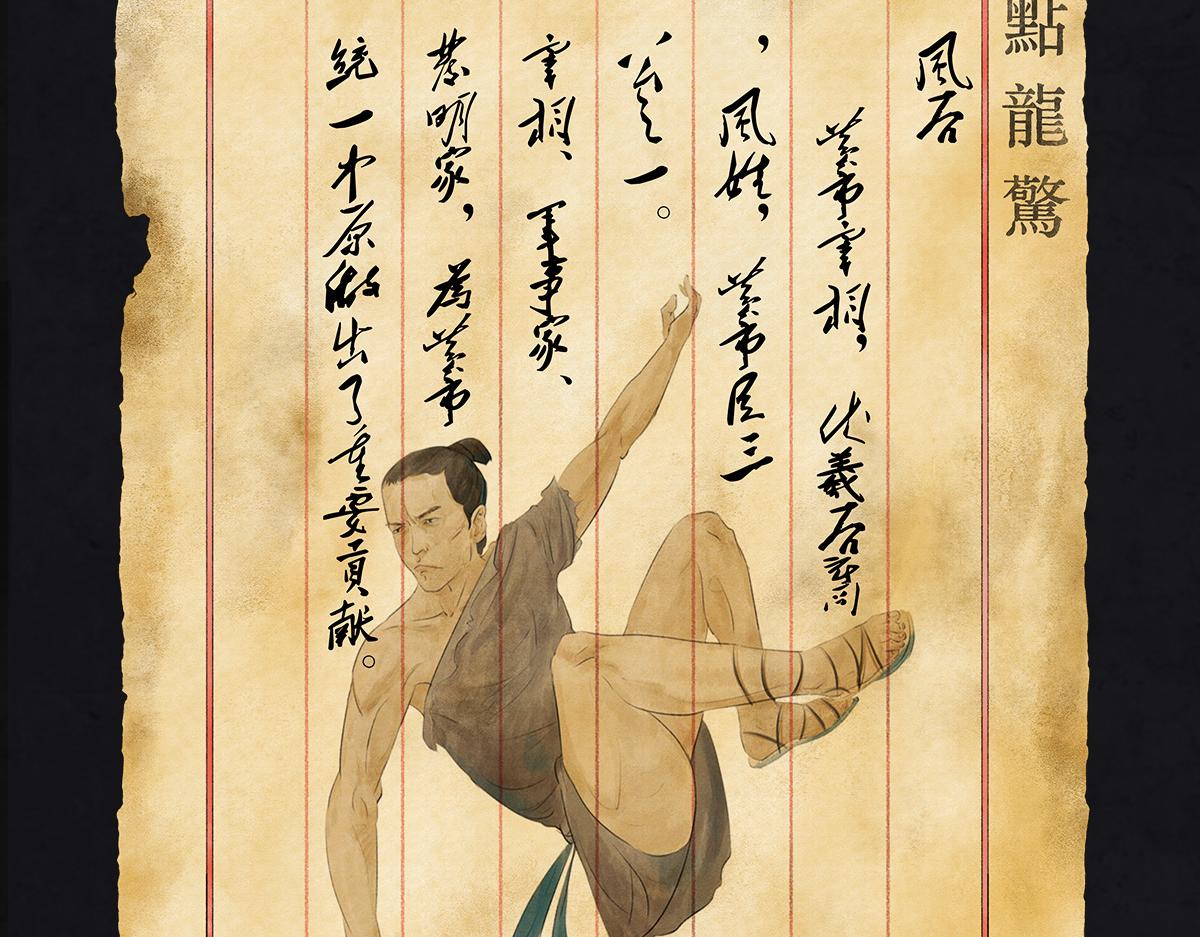 點龍驚
風后
黃帝宰相，伏羲后裔
，風姓，黃帝臣三
公之一。
宰相、軍事家、
發明家，為黃帝
統一中原做出了重要貢献。